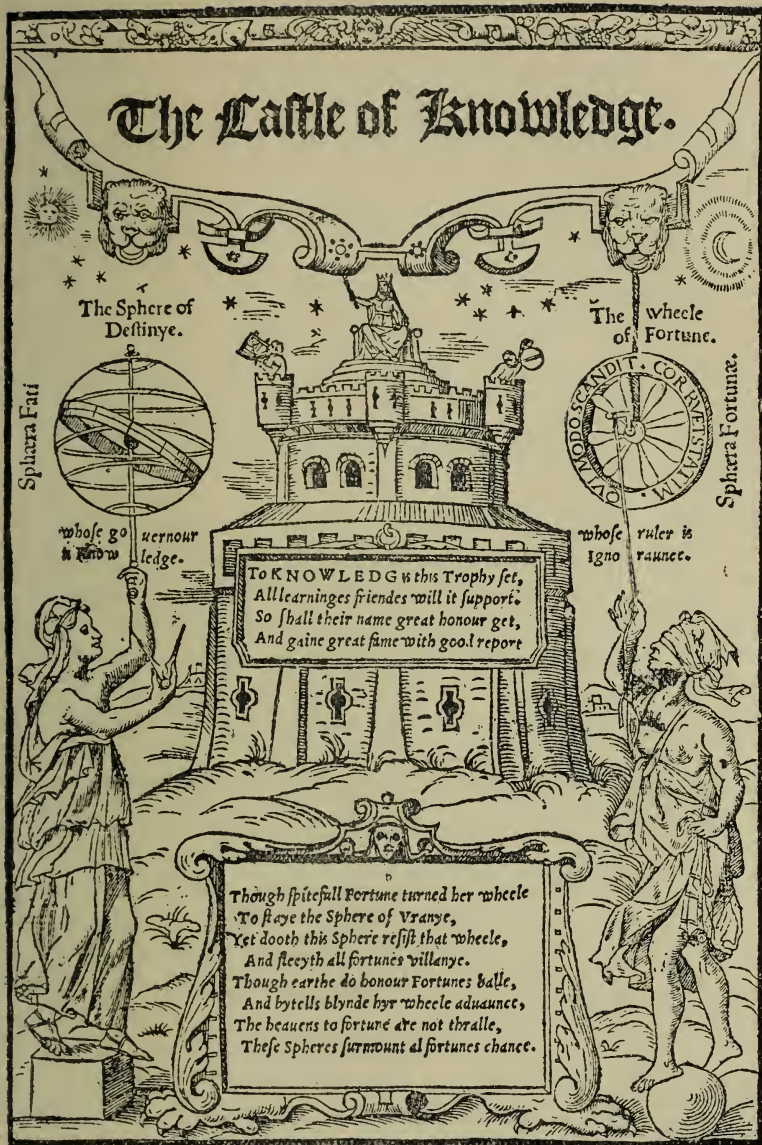 The Caſtle of Knowledge.
The Sphere of
Deſtinye.
The wheele
of Fortune.
Sphæra Fati
QVI MODO SCANDIT · CORRVET STATIM.
Sphæra Fortunæ.
whoſe go uernour
is Know ledge.
whoſe ruler is
Igno raunce.
To KNOWLEDG is this Trophy ſet,
All learninges friendes will it ſupport.
So ſhall their name great honour get,
And gaine great fame with good report
Though ſpitefull Fortune turned her wheele
To ſtaye the Sphere of Vranye,
Yet dooth this Sphere reſiſt that wheele,
And fleeyth all fortunes villanye.
Though earthe do honour Fortunes balle,
And bytells blynde hyr wheele aduaunce,
The heauens to fortune are not thralle,
Theſe Spheres ſurmount al fortunes chance.